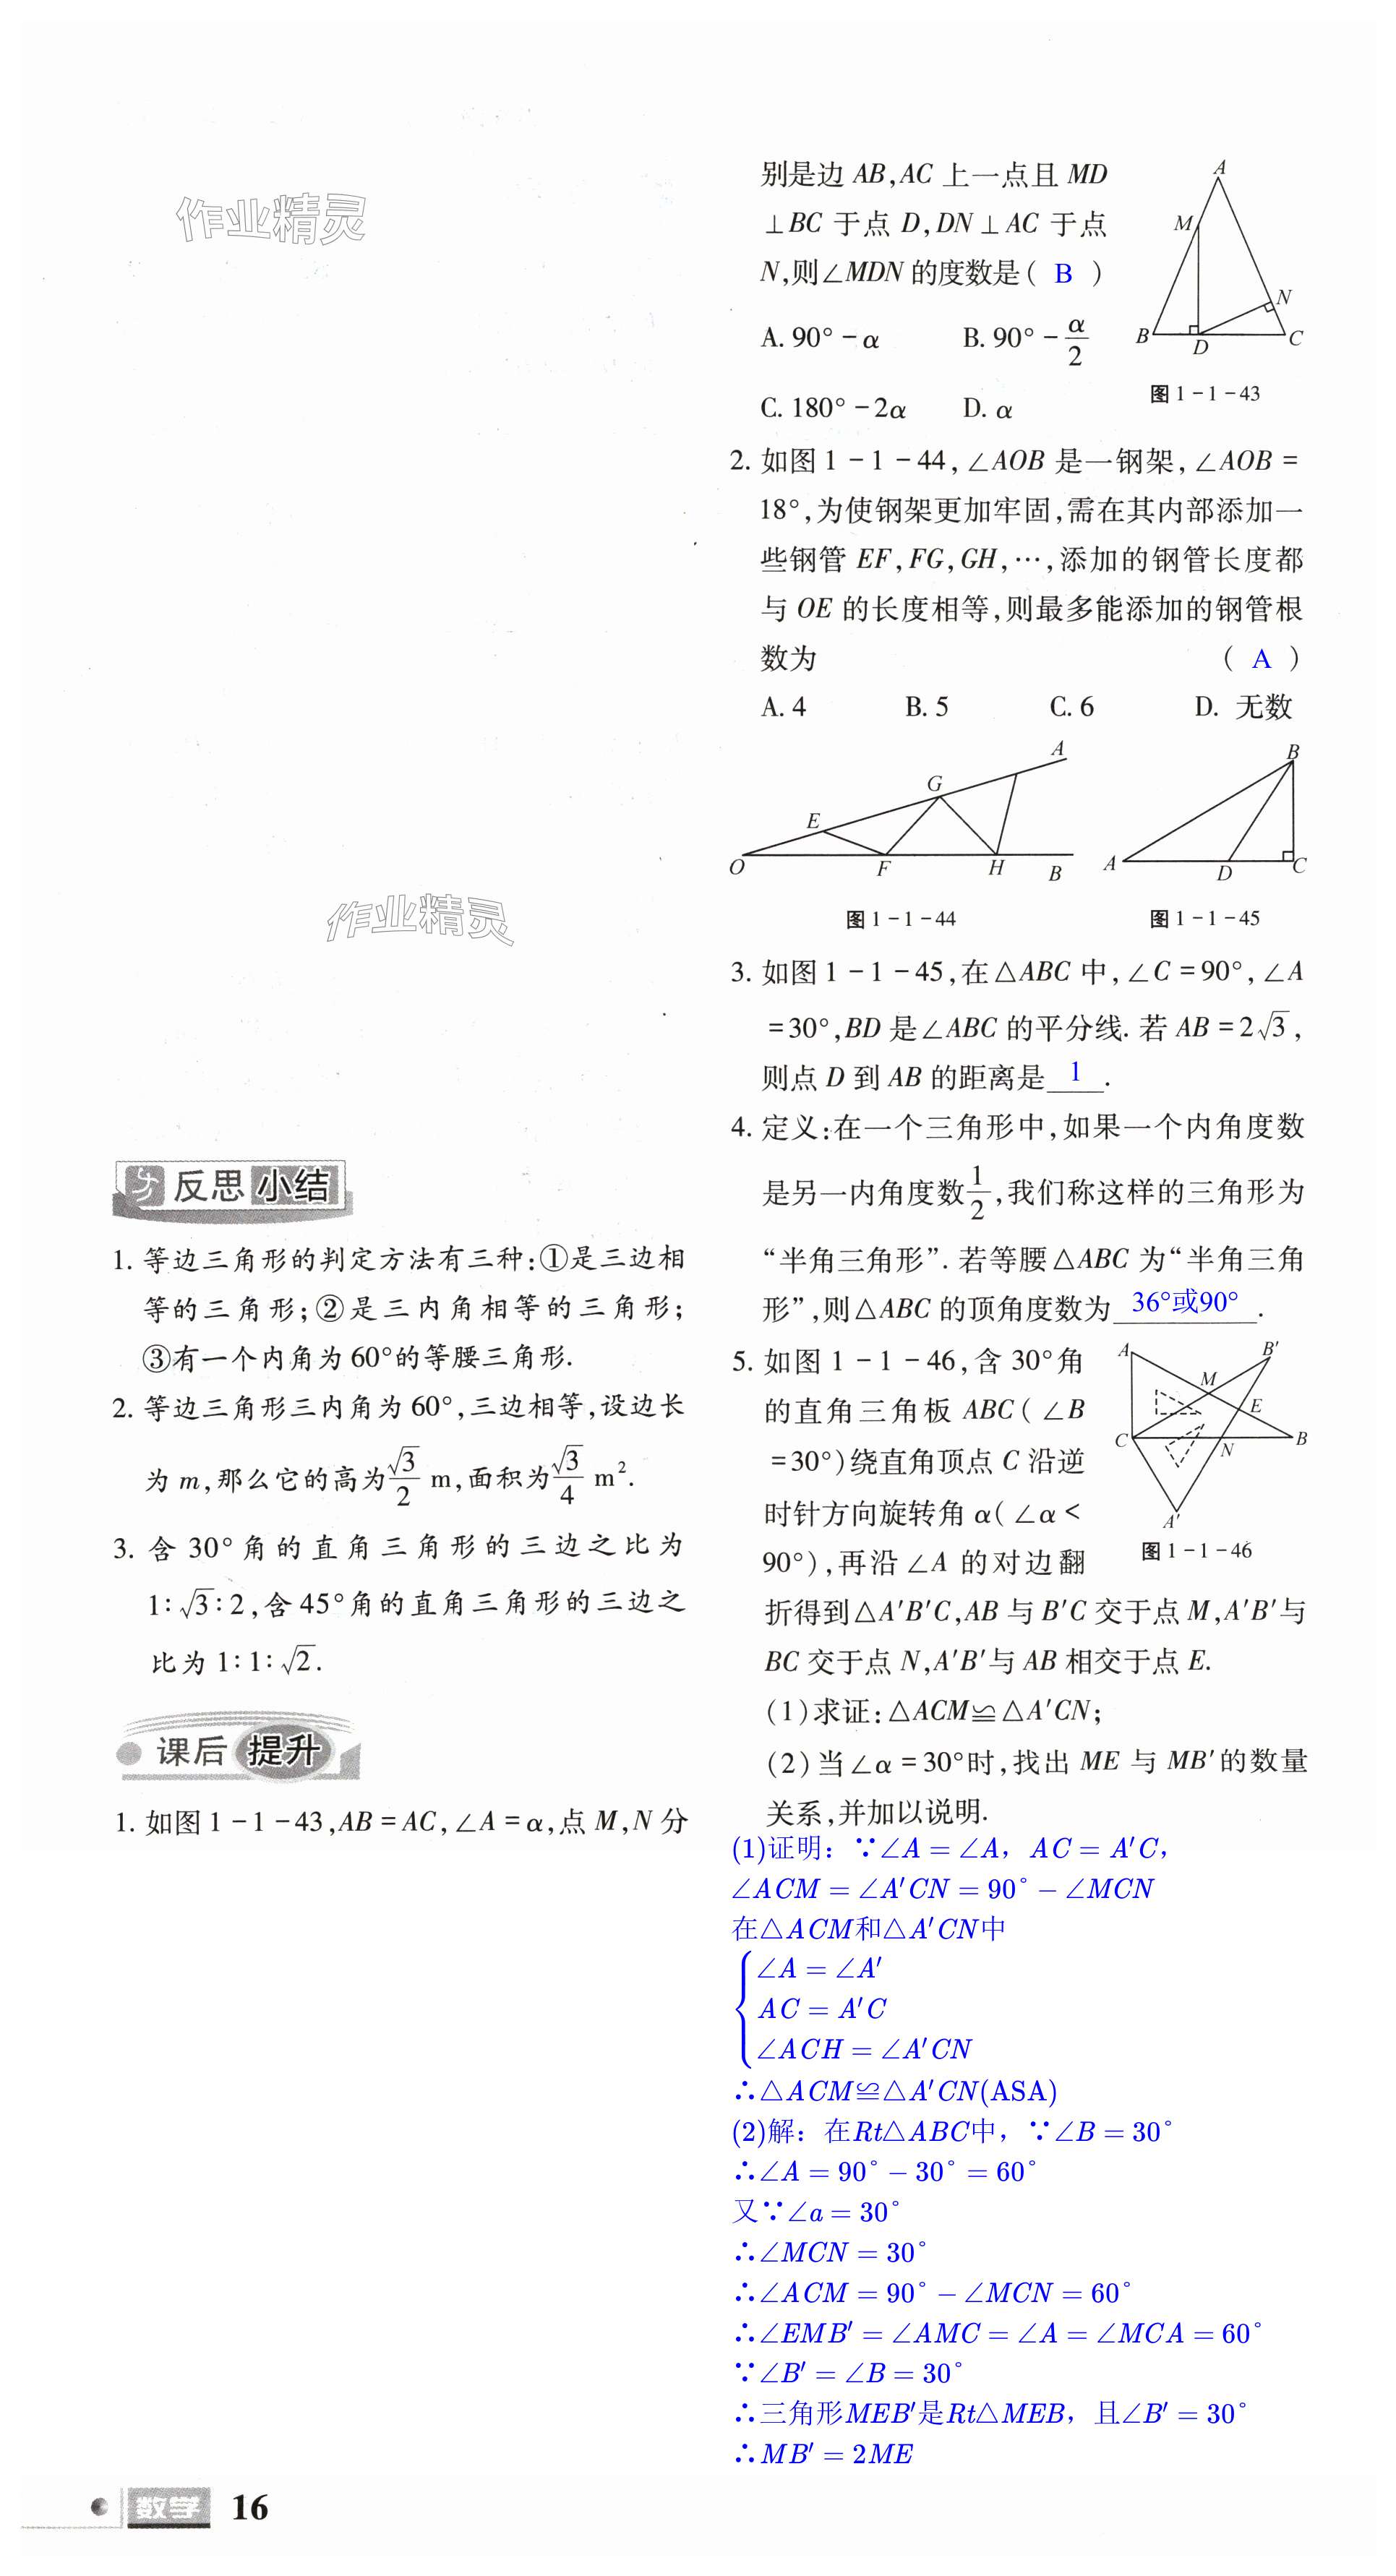 作业精灵
作业精灵
反思小结
1. 等边三角形的判定方法有三种:①是三边相
等的三角形;②是三内角相等的三角形;
③有一个内角为60°的等腰三角形.
2. 等边三角形三内角为60°,三边相等,设边长
为 m,那么它的高为√3/2 m,面积为√3/4 m².
3. 含30°角的直角三角形的三边之比为
1:√3:2,含45°角的直角三角形的三边之
比为1:1:√2.
课后提升
1. 如图1-1-43,AB=AC,∠A=α,点M,N分
别是边AB,AC上一点且MD
⊥BC于点D,DN⊥AC于点
N,则∠MDN的度数是( B )
A. 90°-α B. 90°-α/2
C. 180°-2α D. α
A
M
N
B
D
C
图1-1-43
2. 如图1-1-44,∠AOB是一钢架,∠AOB=
18°,为使钢架更加牢固,需在其内部添加一
些钢管EF,FG,GH,…,添加的钢管长度都
与OE的长度相等,则最多能添加的钢管根
数为 ( A )
A. 4 B. 5 C. 6 D. 无数
A
G
E
O
F
H
B
图1-1-44
B
A
D
C
图1-1-45
3. 如图1-1-45,在△ABC中,∠C=90°,∠A
=30°,BD是∠ABC的平分线.若AB=2√3,
则点D到AB的距离是 1 .
4. 定义:在一个三角形中,如果一个内角度数
是另一内角度数1/2,我们称这样的三角形为
“半角三角形”.若等腰△ABC为“半角三角
形”,则△ABC的顶角度数为 36°或90° .
5. 如图1-1-46,含30°角
的直角三角板ABC(∠B
=30°)绕直角顶点C沿逆
时针方向旋转角α(∠α<
90°),再沿∠A的对边翻
折得到△A′B′C,AB与B′C交于点M,A′B′与
BC交于点N,A′B′与AB相交于点E.
(1)求证:△ACM≌△A′CN;
(2)当∠α=30°时,找出ME与MB′的数量
关系,并加以说明.
A
B′
M
E
C
N
B
A′
图1-1-46
(1)证明:∵∠A=∠A,AC=A′C,
∠ACM=∠A′CN=90°-∠MCN
在△ACM和△A′CN中
∠A=∠A′
AC=A′C
∠ACH=∠A′CN
∴△ACM≌△A′CN(ASA)
(2)解:在Rt△ABC中,∵∠B=30°
∴∠A=90°-30°=60°
又∵∠a=30°
∴∠MCN=30°
∴∠ACM=90°-∠MCN=60°
∴∠EMB′=∠AMC=∠A=∠MCA=60°
∵∠B′=∠B=30°
∴三角形MEB′是Rt△MEB,且∠B′=30°
∴MB′=2ME
数学 16